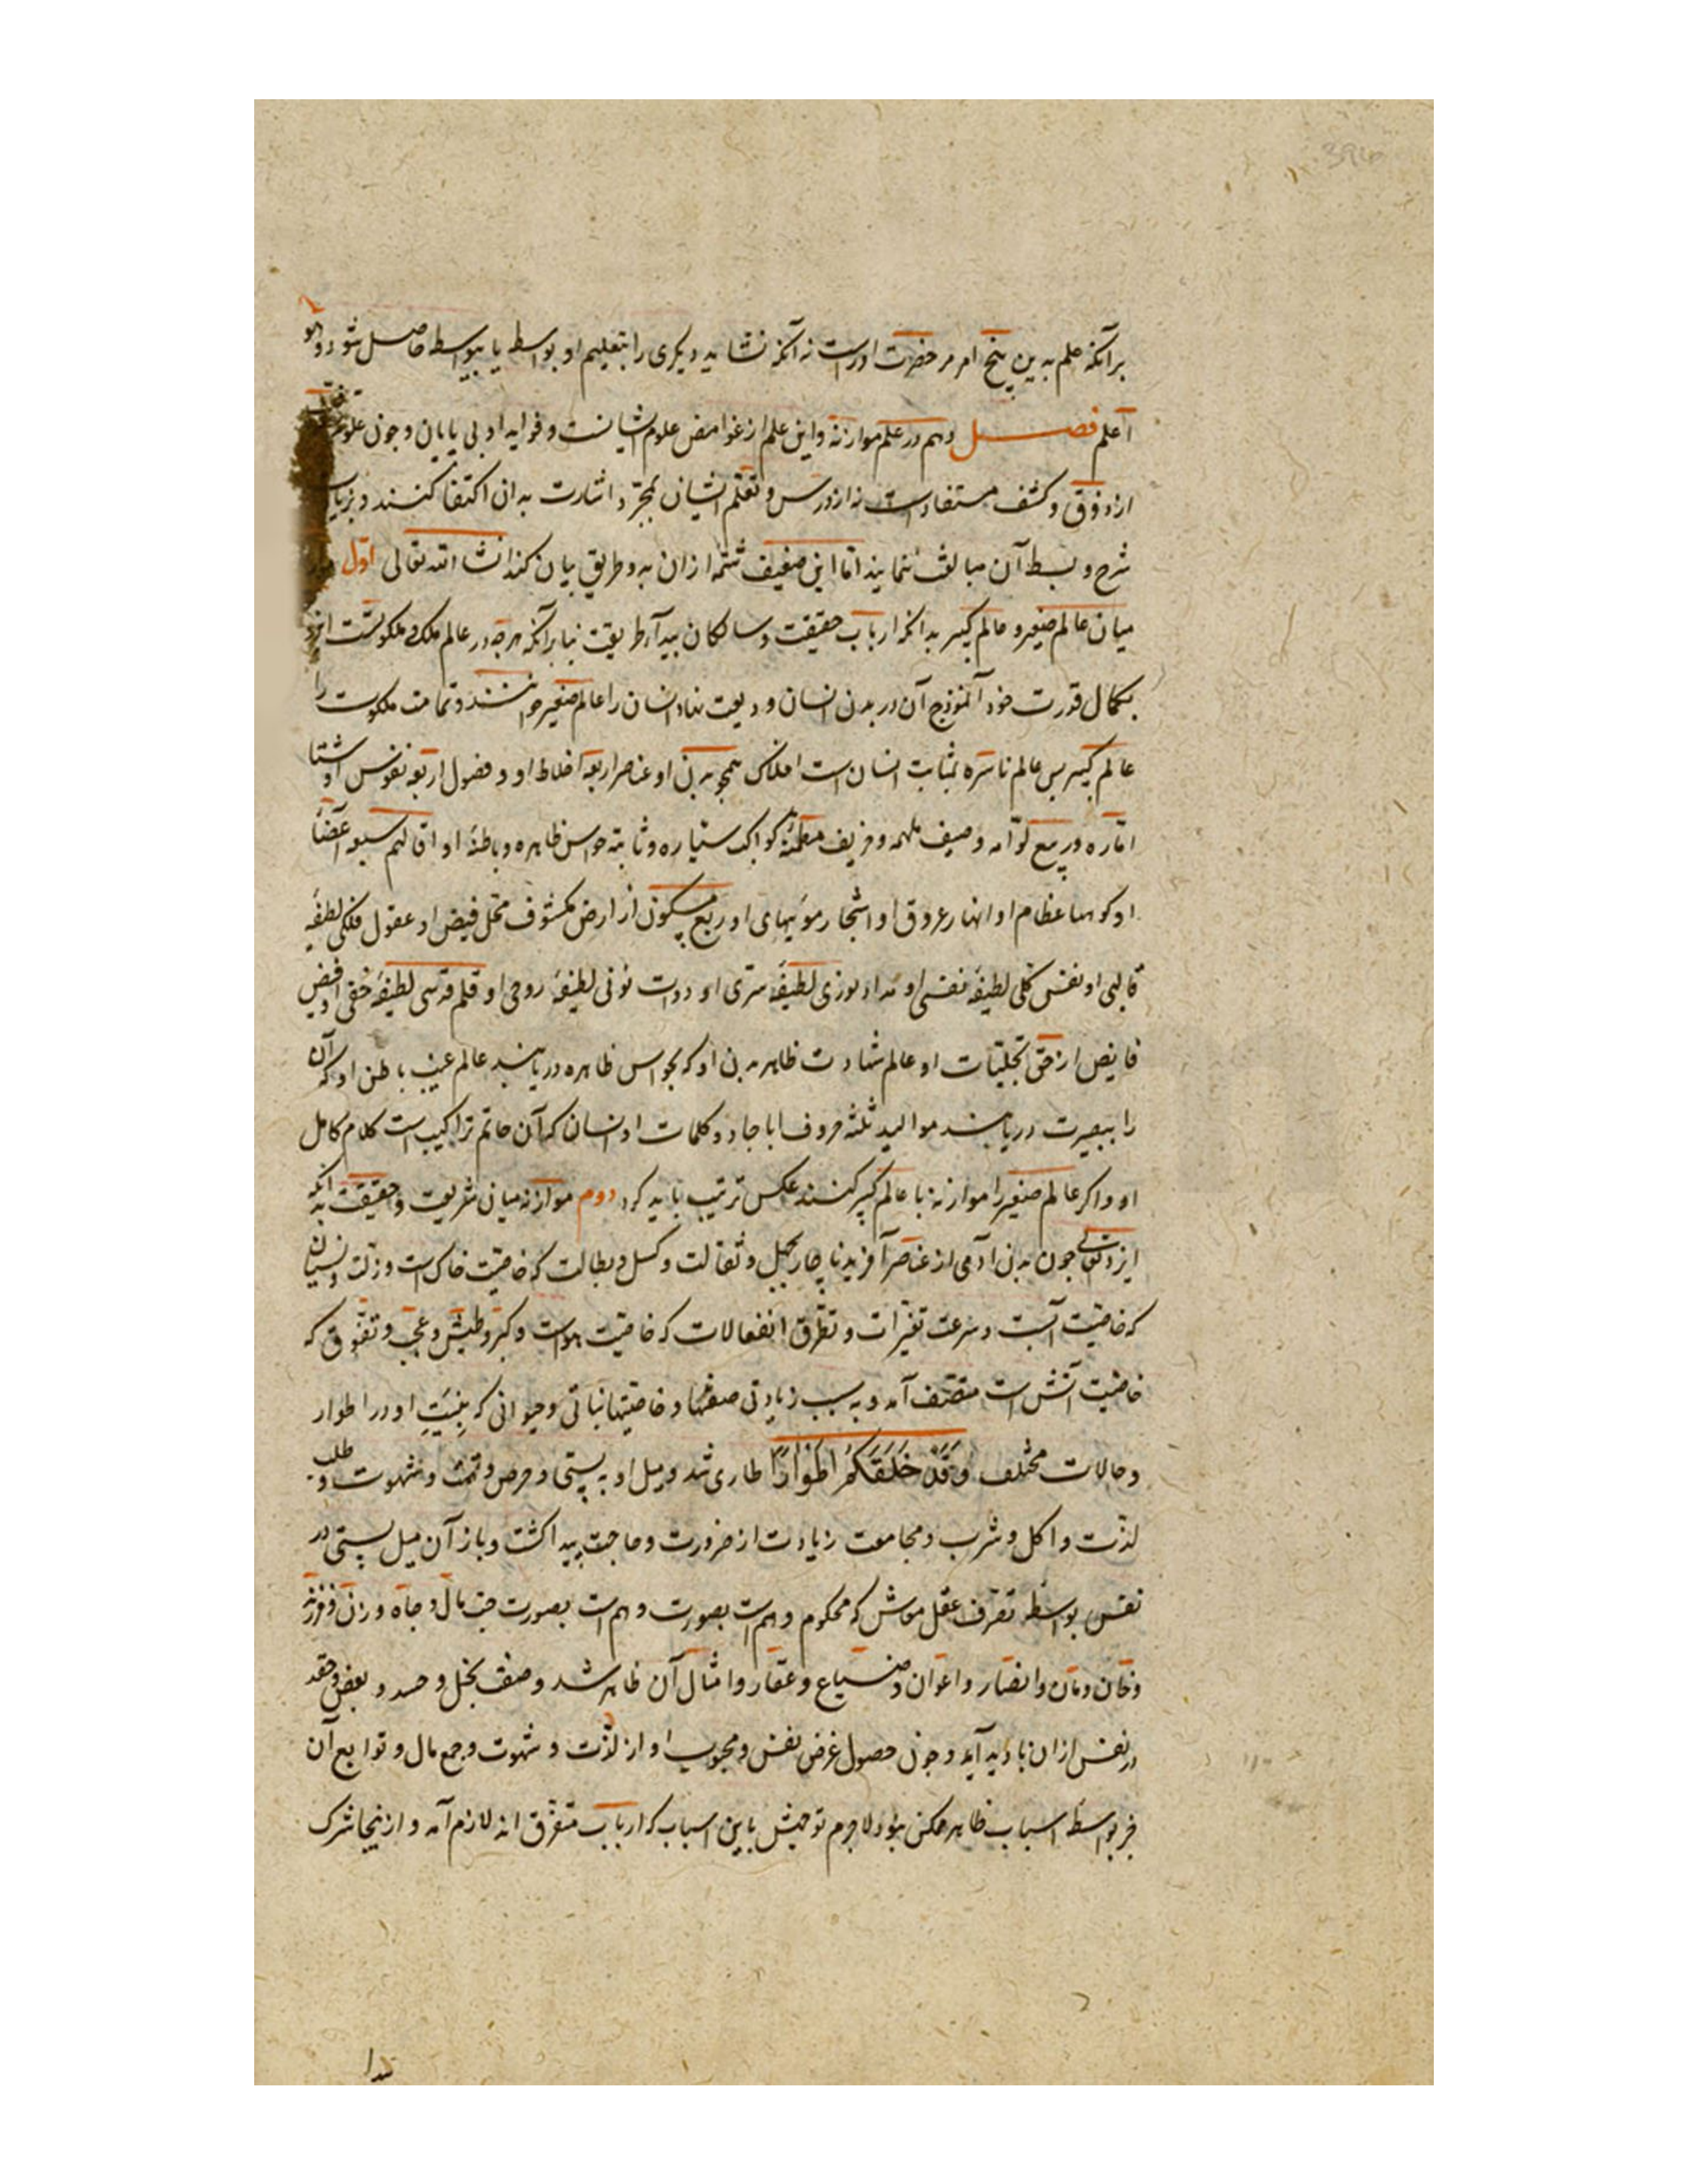 برآنکه علم بدین پنج امر مر حضرت اوراست نه آنکه نشاید دیکری را بتعلیم او بواسطه یا بیواسطه حاصل شود و الله
اعلم فصل دهم در علم موازنه و این علم از غوامض علوم ایشانست و فواید او بی پایان و چون علوم
از ذوق و کشف مستفادست نه از درس و تعلّم ایشان بمجرّد اشارت به ان اکتفا کنند و بزیادت
شرح و بسط آن مبالغت ننمایند امّا این ضعیف شمّه از ان به دو طریق بیان کند انشاء الله تعالی اوّل
میان عالم صغیر و عالم کبیر بدانکه ارباب حقیقت و سالکان بیدآء طریقت بنابر آنکه هرچه در عالم ملک و ملکوتست ایزد
بکمال قدرت خود آنموذج آن در بدن انسان ودیعت نهاد انسان را عالم صغیر خوانند و تمامت ملکوت را
عالم کبیر پس عالم باسره بمثابت انسان است افلاک همچو بدن او عناصر اربعه اخلاط او و فصول اربعه نفوس او شتا
امّاره و ربیع لوّامه و صیف ملهمه و خریف مطمئنّه کواکب سیّاره و ثابته حواس ظاهره و باطنهٔ او اقالیم سبعه اعضآء
او کوهها عظام او انهار عروق او اشجار مویهای او ربع مسکون از ارض مکشوف محلّ فیض او عقول فلکی لطیفهٔ
قالبی او نفس کلّی لطیفهٔ نفسی او مداد نوری لطیفهٔ سرّی او دوات نونی لطیفهٔ روحی او قلم قدسی لطیفهٔ خفی او فیض
فایض از حق تجلّیات او عالم شهادت ظاهر بدن او که بحواس ظاهره دریابند عالم غیب باطن او که آن
را ببصیرت دریابند موالید ثلثه حروف اباجاد و کلمات او انسان که آن خاتم تراکیب است کلام کامل
او و اکر عالم صغیر را موازنه با عالم کبیر کنند عکس ترتیب باید کرد دوم موازنه میان شریعت و حقیقت بدانکه
ایزد تعالی چون بدن ادمی از عناصر آفرید ناچار بجهل و ثقالت و کسل و بطالت که خاصیّت خاک است و زلّت و نسیان
که خاصیّت آبست و سرعت تغیّرات و تطرّق انفعالات که خاصیّت هواست و کبر و طیش و عجب و تفوّق که
خاصیّت آتش است متّصف آمد و به سبب زیادتی صفتها و خاصیّتها نباتی و حیوانی که بنیتِ او در اطوار
و حالات مختلف وَقَدْ خَلَقَكُمْ اَطْوَارًا طاری شد و میل او به پستی و حرص و تمتّع و شهوت و طلب
لذّت و اکل و شرب و مجامعت زیادت از ضرورت و حاجت پیدا کشت و باز آن میل پستی در
نفس بواسطه تصرف عقل معاش که محکوم وهم است بصورت وهم است بصورت حبّ مال و جاه و زن و فرزند
و خان و مان و انصار و اعوان و ضیاع و عقار و امثال آن ظاهر شد و صفت بخل و حسد و بغض و حقد
در نفس از ان بادید آید و چون حصول غرض نفس و محبوب او از لذّت و شهوت و جمع مال و توابع آن
جز بواسطه اسباب ظاهر ممکن نبود لاجرم توجهش باین اسباب که ارباب متفرّق اند لازم آمد و از ینجا شرک